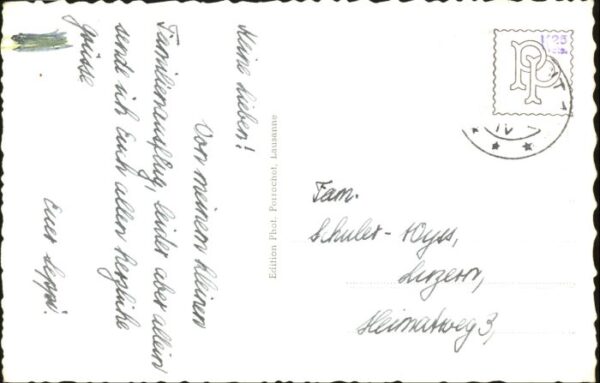 Meine Lieben!
Von meinem kleinen
Familienausflug, leider aber allein
sende ich Euch allen herzliche
Grüsse
Euer Seppi.
Edition Phot. Perrochet, Lausanne
PP
Fam.
Schuler-Wyss,
Luzern,
Heimatweg 3,